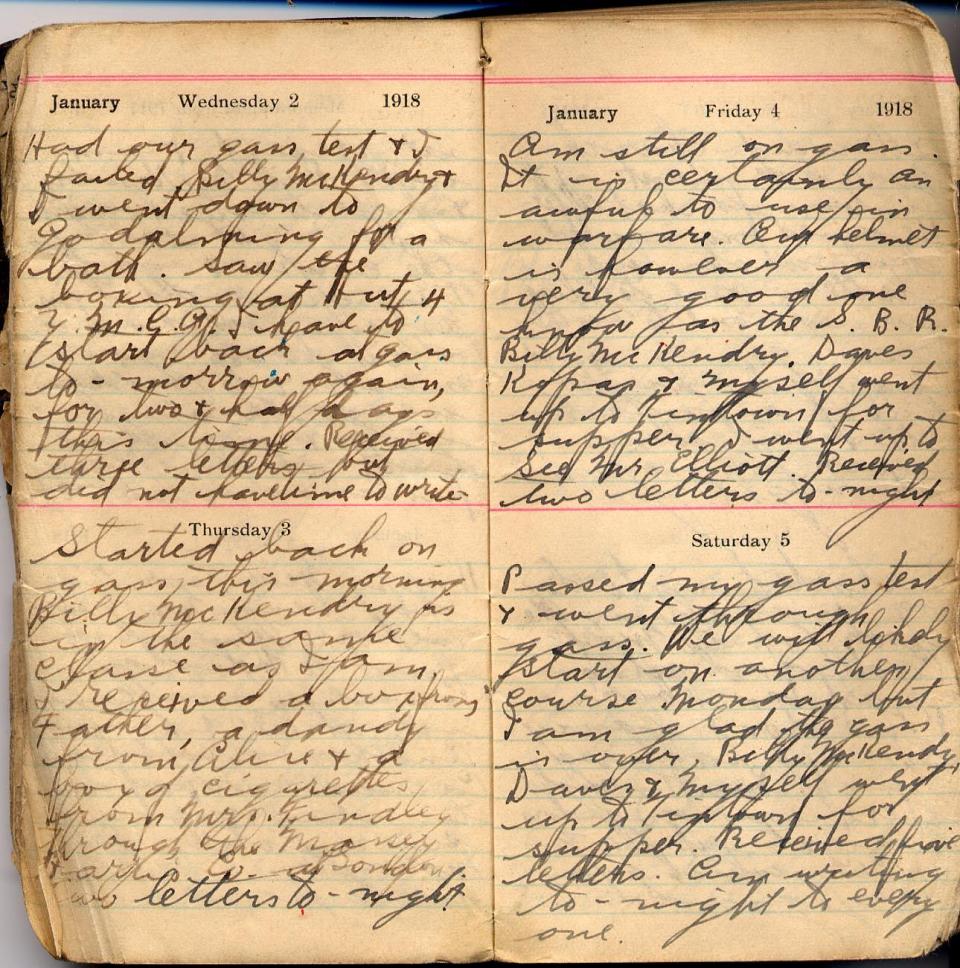 January Wednesday 2 1918
Had our gass test & I
failed Billy McKendry &
I went down to
Godalming for a
bath. Saw the
boxing at Hut 4
Y.M.C.A. I have to
start back at gass
to-morrow again,
for two & half days
this time. Received
three letters but
did not have time to write
Thursday 3
Started back on
gass this morning
Billy McKendry is
in the same
classe as I am,
I received a box from
Father, a dandy
from Alice & a
box of cigarettes
from Mrs. Findley
through the Massey
Co.
letters to-night
January Friday 4 1918
Am still on gass.
It is certainly an
awful to use in
warfare. Our helmet
is however a
very good one
know as the S. B. R.
Billy McKendry. Daves
& myself went
up to Tintown for
supper. I went up to
see Mr Elliott. Received
two letters to-night
Saturday 5
Passed my gass test
& went through
gass. We will likely
start on another
course Monday but
I am glad the gass
is over, Billy McKendy,
Davey & myself went
up to Tintown for
supper. Received five
letters. Am writing
to-night to every
one.